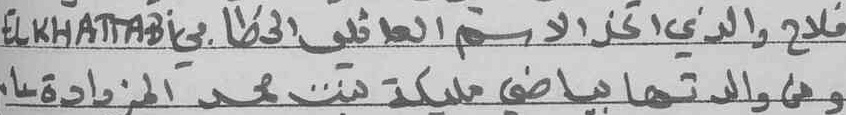 فلاح والذي اتخذ الاسم العائلي الخطابي ELKHATTABI
ومن والدتها بياضي مليكة بنت محمد المزدادة